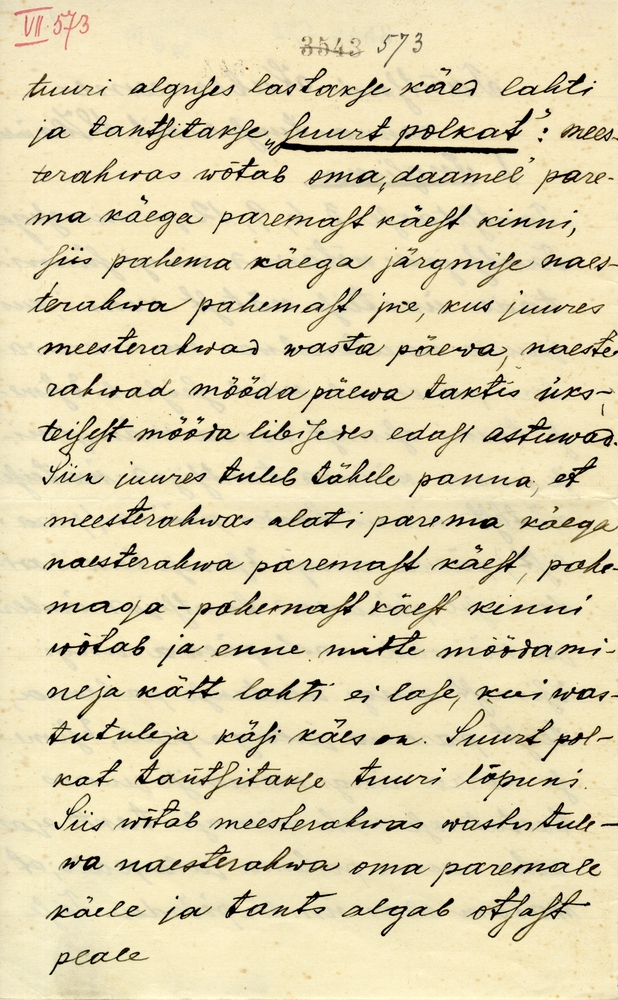 VII 573
3543 573
tuuri alguses lastakse käed lahti
ja tantsitakse „suurt polkat“: mees-
terahwas wõtab oma „daamel“ pare-
ma käega paremast käest kinni,
siis pahema käega järgmise naes-
terahwa pahemast jne, kus juures
meesterahwad wasta päewa, naeste-
rahwad mööda päewa taktis üks-
teisest mööda libisedes edasi astuwad.
Siin juures tuleb tähele panna, et
meesterahwas alati parema käega
naesterahwa paremast käest, pahe-
maga - pahemast käest kinni
wõtab ja enne mitte möödami-
neja kätt lahti ei lase, kui was-
tutuleja käsi käes on. Suurt pol-
kat tantsitakse tuuri lõpuni.
Siis wõtab meesterahwas wastutule-
wa naesterahwa oma paremale
käele ja tants algab otsast
peale